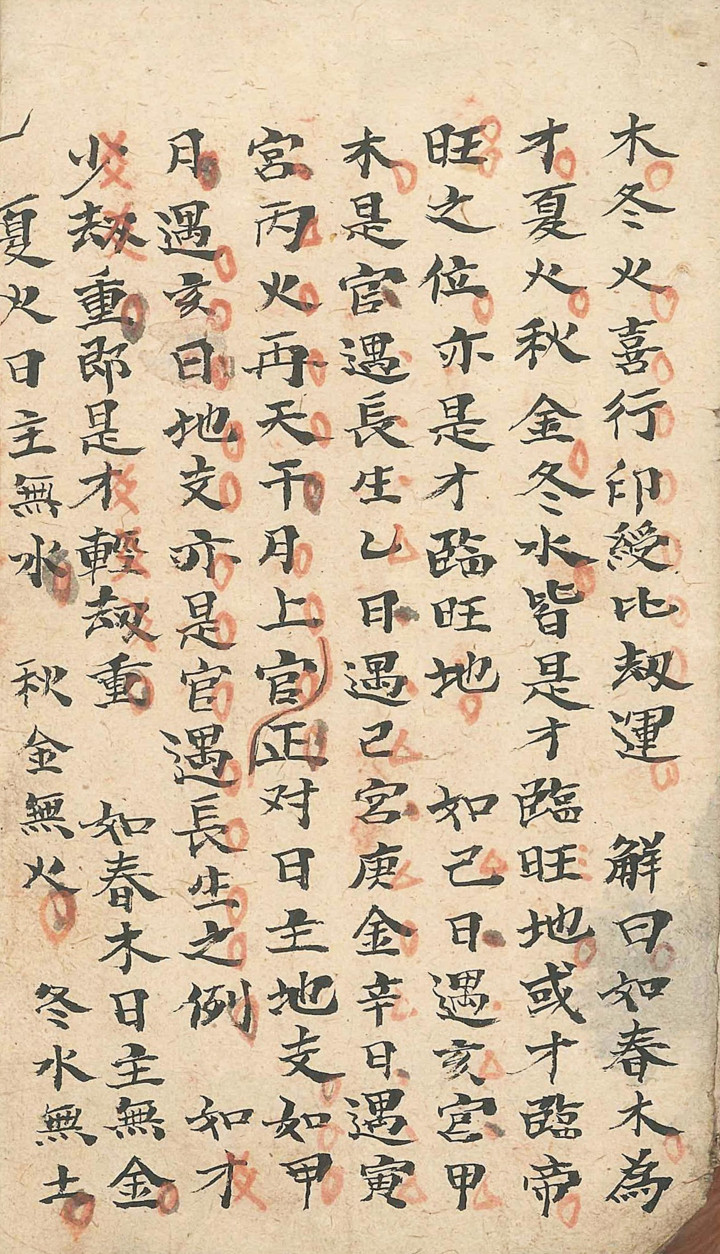 木冬火喜行印綬比刼運　解曰如春木為
才夏火秋金冬水皆是才臨旺地或才臨帝
旺之位亦是才臨旺地　如己日遇亥宫甲
木是官遇長生乙日遇己宮庚金辛日遇寅
宮丙火再天干月上官正对日主地支如甲
月遇亥日地支亦是官遇長生之例　如才
少刼重即是才輕刼重　如春木日主無金
夏火日主無水　秋金無火　冬水無土